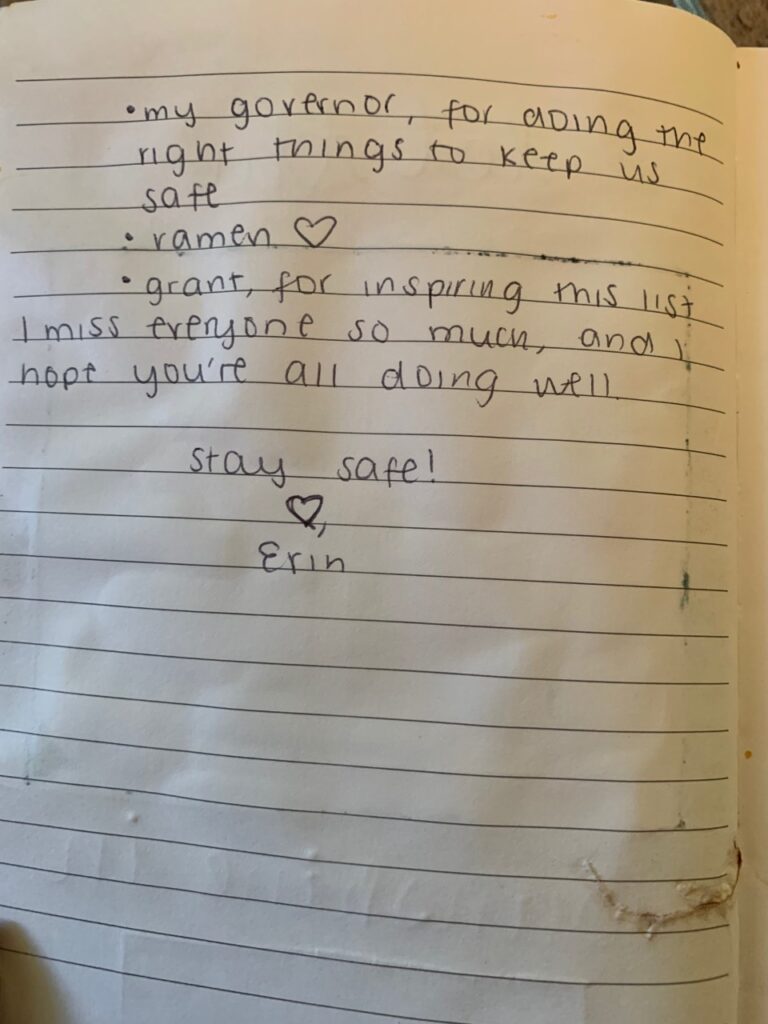 • my governor, for doing the
right things to keep us
safe
• ramen ♡
• grant, for inspiring this list
I miss everyone so much, and i
hope you're all doing well.
stay safe!
♡,
Erin